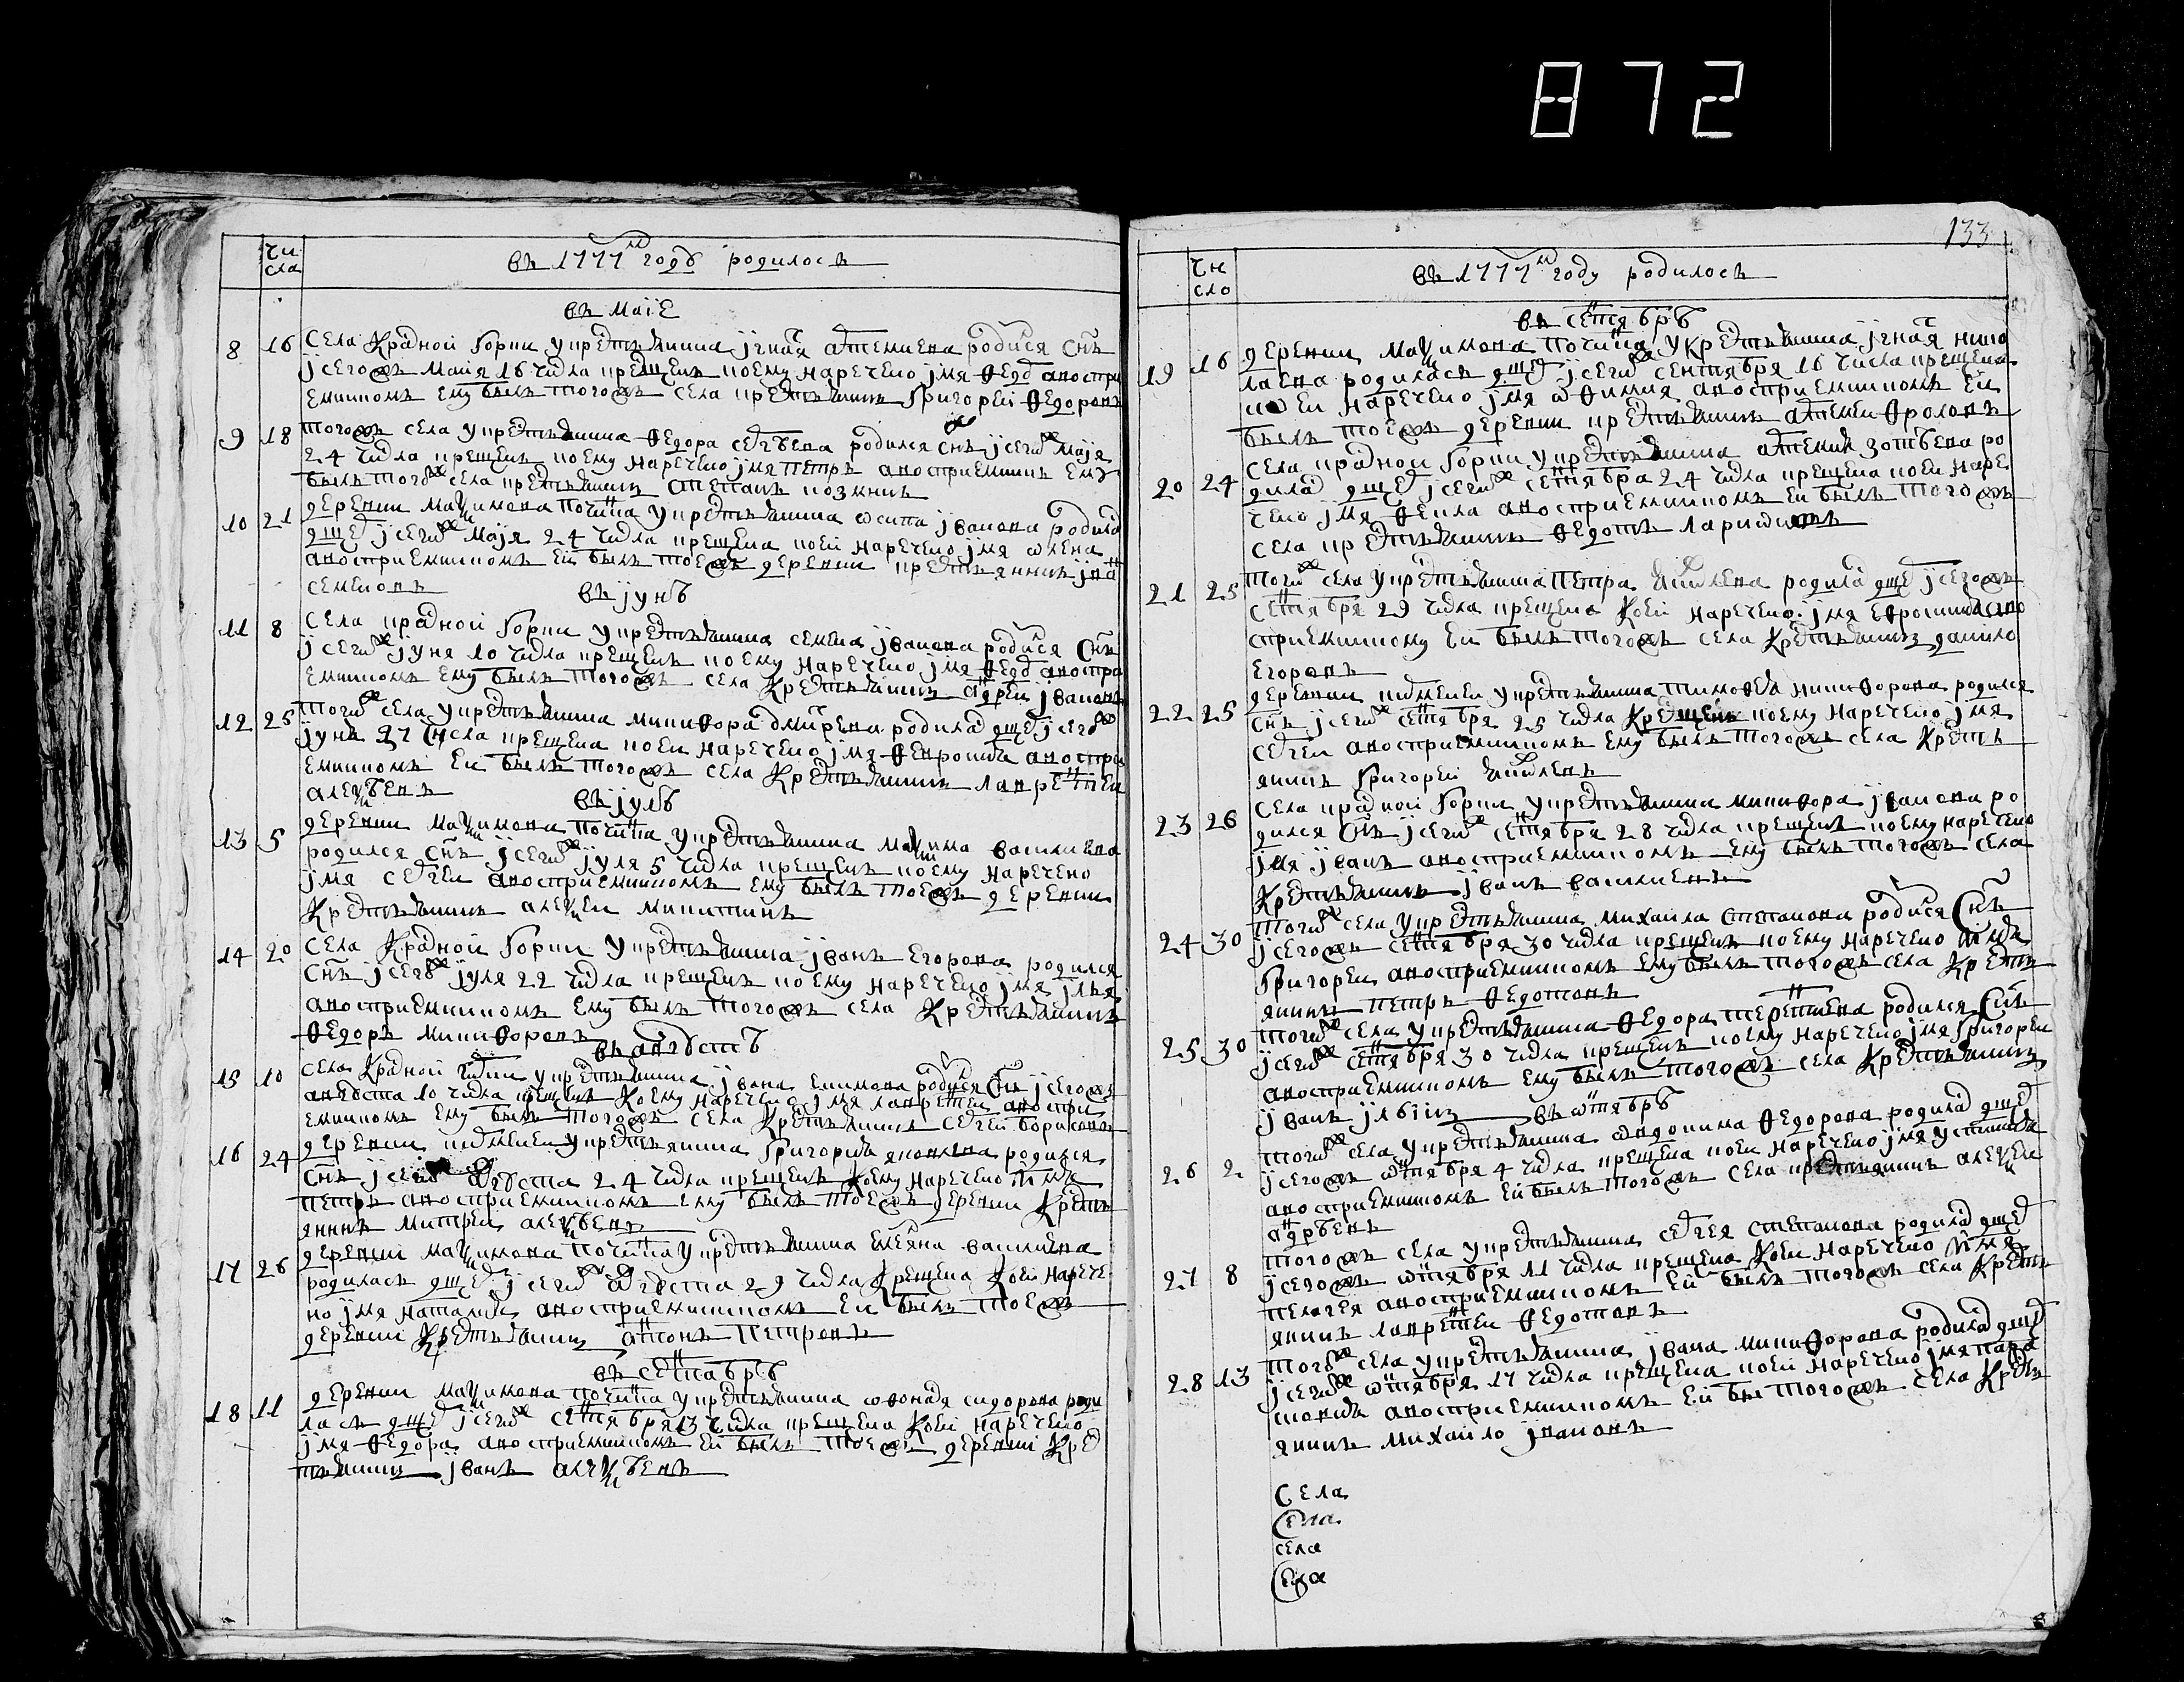 872
133
чи
сла
въ 1777м годѣ родилось
въ маіе
8 16 Села Красной Горки у крестьянина Ігната Артемиева родися снъ
і сегожъ маия 16 числа крещенъ коему наречено імя Федор а воспри
емником ему былъ тогожъ села крестьянинъ Григорей Федоровъ
9 18 тогожъ села у крестьянина Федора Сергѣева родился снъ і сегож маія
24 числа крещенъ коему наречено імя Петръ а восприемникъ ему
былъ тогож села крестьянинъ Степанъ
10 21 деревни Маѯимова Починка у крестьянина Осипа Іванова родилас
дщер і сегож маія 24 числа крещена коей наречено імя Олена
а восприемникомъ ей былъ тоежъ деревни крестьянинъ
Семионъ
въ іунѣ
11 8 Села Красной Горки у крестьянина Семена Іванова родися снъ
і сегож іуня 10 числа крещенъ коему наречено імя Федор а воспри
емникомъ ему былъ тогожъ села крестьянинъ Андрей Івановъ
12 25 тогож села у крестьянина Микифора Дмитрева родилас дщер і сегож
іуня 27 числа крещена коей наречено імя Феврониа а воспри
емникомъ ей былъ тогожъ села крестьянинъ Лаврентей
Алеѯѣевъ
въ іулѣ
13 5 деревни Маѯимова Починка у крестьянина Маѯима Василиева
родился снъ і сегож іуля 5 числа крещенъ коему наречено
імя Сергей а восприемникомъ ему былъ тоежъ деревни
крестьянинъ Алеѯей Микитинъ
14 20 Села Красной Горки у крестьянина Іванъ Егорова родился
снъ і сегож іуля 22 числа крещенъ коему наречено імя Ілья
а восприемникомъ ему былъ тогожъ села крестьянинъ
Федоръ Микифоровъ
въ августѣ
15 10 Села Красной Горки у крестьянина Івана Екимова родися снъ і сегожъ
августа 10 числа крещенъ коему наречено імя Лаврентей а воспри
емникомъ ему былъ тогожъ села крестьянинъ Сергей Борисовъ
16 24 деревни у крестьянина Григорья Яковлева родился
снъ і сегож августа 24 числа крещенъ коему наречено імя
Петръ а восприемникомъ ему былъ тоежъ деревни крестъ
янинъ Митрей Алеѯѣевъ
17 26 деревни Маѯимова Починка у крестьянина Емельяна Василиева
родилась дщер і сегож августа 29 числа крещена коей нарече
но імя Наталья а восприемникомъ ей былъ тоежъ
деревни крестьянинъ Антонъ Петровъ
въ сентабрѣ
18 11 деревни Маѯимова Починка у крестьянина Офонася Сидорова роди
лась дщер і сегож сентября 13 числа крещена коей наречено
імя Федора а восприемникомъ ей былъ тоежъ деревни крес
тьянинъ Іванъ Алеѯѣевъ
чи
сло
въ 1777м году родилось
въ сентябрѣ
19 16 деревни Маѯимова Починка у крестьянина Ігната Нико
лаева родилась дщер і сегож сентября 16 числа крещена
коей наречено імя Офимия а восприемникомъ ей
былъ тоежъ деревни крестьянинъ Артемей Фроловъ
20 24 Села Красной Горки у крестьянина Артемия Зотѣева ро
дилас дщер і сегож сентября 24 числа крещена коей наре
чено імя Фекла а восприемникомъ ей былъ тогожъ
села крестьянинъ Федотъ Ларионовъ
21 25 тогож села у крестьянина Петра родилас дщер і сегожъ
сентября 29 числа крещена коей наречено імя Ефросинья а во
сприемникому ей былъ тогожъ села крестьянинъ Данило
Егоровъ
22 25 деревни у крестьянина Тимофея Никифорова родился
снъ і сегож сентября 25 числа крещенъ коему наречено імя
Сергей а восприемникомъ ему былъ тогожъ села крестъ
янинъ Григорей
23 26 Села Красной Горки у крестьянина Микифора Іванова ро
дился снъ і сегож сентября 28 числа крещенъ коему наречено
імя Іванъ а восприемникомъ ему былъ тогожъ села
крестьянинъ Іванъ Василиевъ
24 30 тогож села у крестьянина Михаила Степанова родися снъ
і сегожъ сентября 30 числа крещенъ коему наречено імя
Григорей а восприемникомъ ему былъ тогожъ села крестъ
янинъ Петръ Федотовъ
25 30 тогож села у крестьянина Федора Терентиева родился снъ
і сегож сентября 30 числа крещенъ коему наречено імя Григорей
а восприемникомъ ему былъ тогожъ села крестьянинъ
Іванъ Ільінъ
въ октябрѣ
26 2 тогож села у крестьянина Овдокима Федорова родилас дщер
і сегожъ октября 4 числа крещена коей наречено імя Устинья
а восприемникомъ ей былъ тогожъ села крестьянинъ Алеѯей
Андрѣевъ
27 8 тогожъ села у крестьянина Сергея Степанова родилас дщер
і сегожъ октября 11 числа крещена коей наречено імя
Пелагея а восприемникомъ ей былъ тогожъ села крестъ
янинъ Лаврентей Федотовъ
28 13 тогож села у крестьянина Івана Микифорова родилас дщер
і сегож октября 17 числа крещена коей наречено імя Пара
сковья а восприемникомъ ей былъ тогожъ села крестъ
янинъ Михайло Івановъ
Села
Села
села
Села